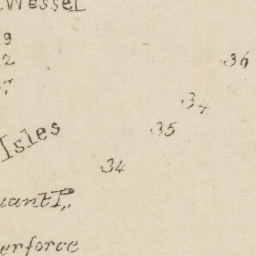 Wessel
9
2
36
34
35
Isles
34
uant I.
erforce